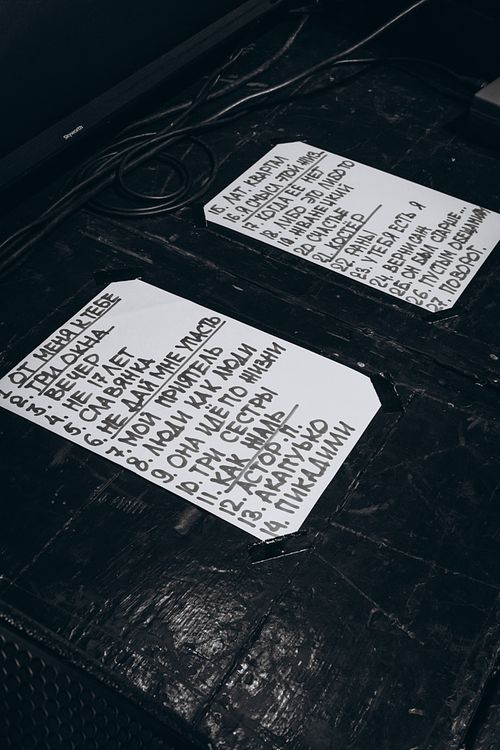 Skyworth
1. ОТ МЕНЯ К ТЕБЕ
2. ТРИ ОКНА
3. ВЕЧЕР
4. НЕ 17 ЛЕТ
5. СЛАВЯНКА
6. НЕ ДАЙ МНЕ УПАСТЬ
7. МОЙ ПРИЯТЕЛЬ
8. ЛЮДИ КАК ЛЮДИ
9. ОНА ИДЕ ПО ЖИЗНИ
10. ТРИ СЕСТРЫ
11. КАК ЖАЛЬ
12. АСТОР.И.
13. АКАПУЛЬКО
14. ПИКАДИЛИ
15. ЛАТ. КВАРТАЛ
16. Я СМЫСЛ ЭТОЙ ЖИЗ.
17. КОГДА ЕЕ НЕТ
18. ЛИБО ЭТО ЛИБО ТО
19. МЕХАНЦИЙ
20. СЧАСТЬЕ
21. КОСТЕР
22. РАНЫ
23. У ТЕБЯ ЕСТЬ Я
24. ВЕРНИСАЖ
25. ОН БЫЛ СТАРШЕ...
26. ПУСТЫМ ОБЕЩАНИЯМ
27. ПОВОРОТ